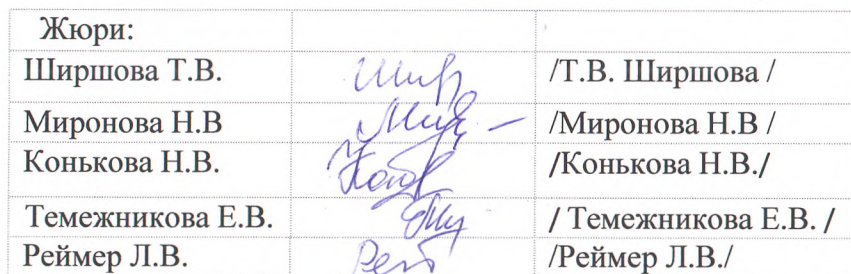 Жюри:
Ширшова Т.В. /Т.В. Ширшова /
Миронова Н.В /Миронова Н.В /
Конькова Н.В. /Конькова Н.В./
Темежникова Е.В. / Темежникова Е.В. /
Реймер Л.В. /Реймер Л.В./